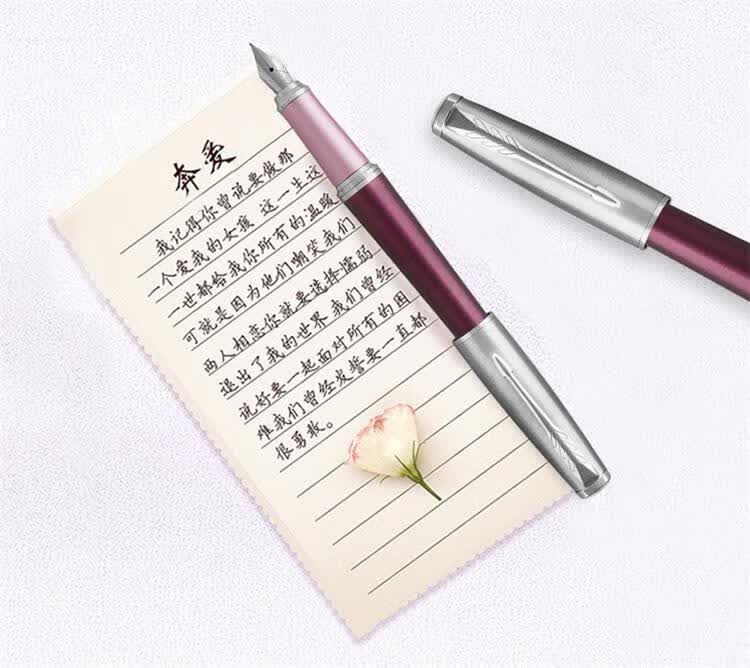 奔爱
我记得你曾说要做那
一个爱我的女孩 这一生这
一世都给我你所有的温暖
可就是因为他们嘲笑我们
两人相恋你就要选择懦弱
退出了我的世界 我们曾经
说好要一起面对所有的困
难我们曾经发誓要一直都
很勇敢。